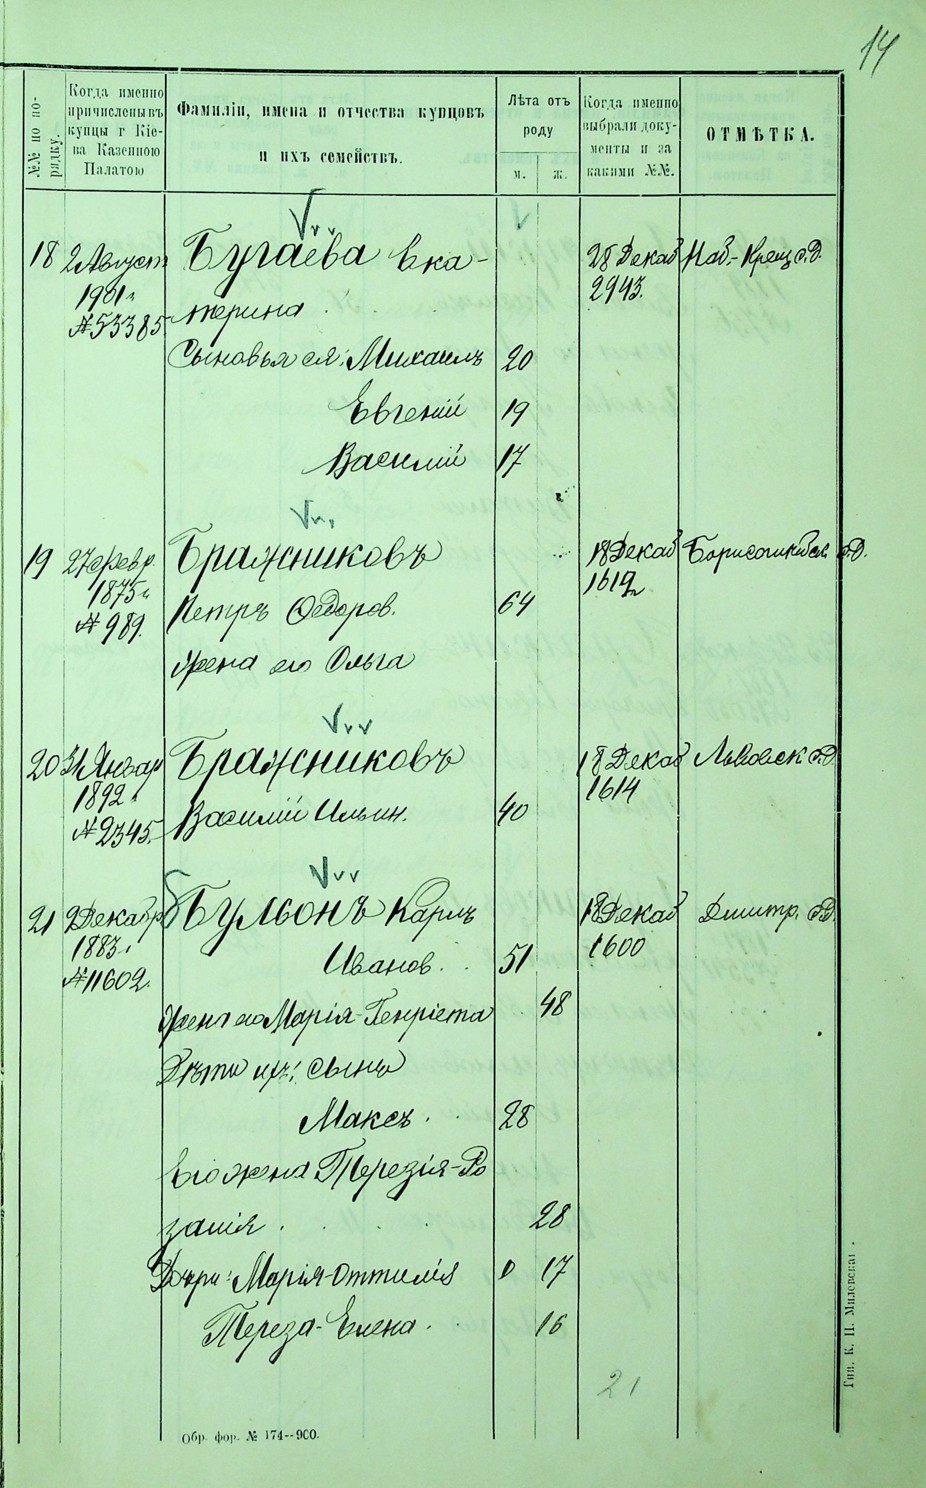 14
№№ по по-
рядку.
Когда именно
причислены въ
купцы г Кіе-
ва Казенною
Палатою
Фамиліи, имена и отчества купцовъ
и ихъ семействъ.
Лѣта отъ
роду
м. ж.
Когда именно
выбрали доку-
менты и за
какими №№.
ОТМѢТКА.
18 2 Август Бугаева Ека- 28 Декаб
1901 г. терина 2943.
№ 53385
Сыновья ея: Михаилъ 20
Евгеній 19
Василій 17
19 27 Февр. Бражниковъ 18 Декаб
1875 г. 1612
№ 989. Петръ Ѳедоров. 64
Жена его Ольга
20 31 Январ Бражниковъ 18 Декаб Львовск
1892 г. 1614
№ 2345. Василій Ильин. 40
21 9 Декабр Бульонъ Карлъ 18 Декаб Дмитр.
1883 г. Иванов. 51 1600
№ 11602.
Жена его Марія-Генріета 48
Дѣти ихъ: сынъ
Максъ 28
Его жена Терезія-Ро
залія 28
Дочери: Марія-Оттилія 17
Тереза-Елена 16
21
Обр. фор. № 174--900.
Тип. К. Н. Милевскаг